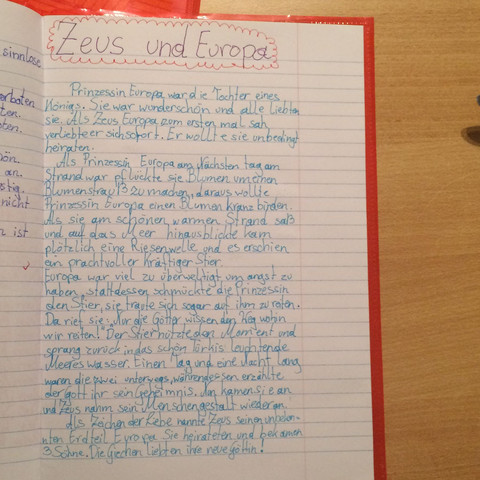 sinnlose
erboten
ten.
ten.
ön
an.
stig.
nicht
n ist
Zeus und Europa
Prinzessin Europa war die Tochter eines
Königs. Sie war wunderschön und alle liebten
sie. Als Zeus Europa zum ersten mal sah
verliebte er sich sofort. Er wollte sie unbedingt
heiraten.
Als Prinzessin Europa am Nächsten tag am
Strand war pflückte sie Blumen um einen
Blumenstrauß zu machen, daraus wollte
Prinzessin Europa einen Blumen kranz binden.
Als sie am schönen warmen Strand saß
und auf das Meer hinausblickte kam
plötzlich eine Riesenwelle und es erschien
ein prachtvoller kräftiger Stier.
Europa war viel zu überweltigt um angst zu
haben, stattdessen schmückte die Prinzessin
den Stier, sie traute sich sogar auf ihm zu reiten.
Da rief sie: Nur die Götter wissen den Weg wohin
wir reiten! Der Stier nützte den Moment und
sprang zurück in das schön türkis leuchtende
Meeres wasser. Einen Tag und eine Nacht lang
waren die zwei unterwegs, währenddessen erzählte
der Gott ihr sein Geheimnis. kamen sie an
und Zeus nahm sein Menschengestalt wieder an.
Als Zeichen der Liebe nannte Zeus seinen unbekan-
nten Erdteil Europa. Sie heirateten und bekamen
3 Söhne. Die Griechen liebten ihre neue Göttin!